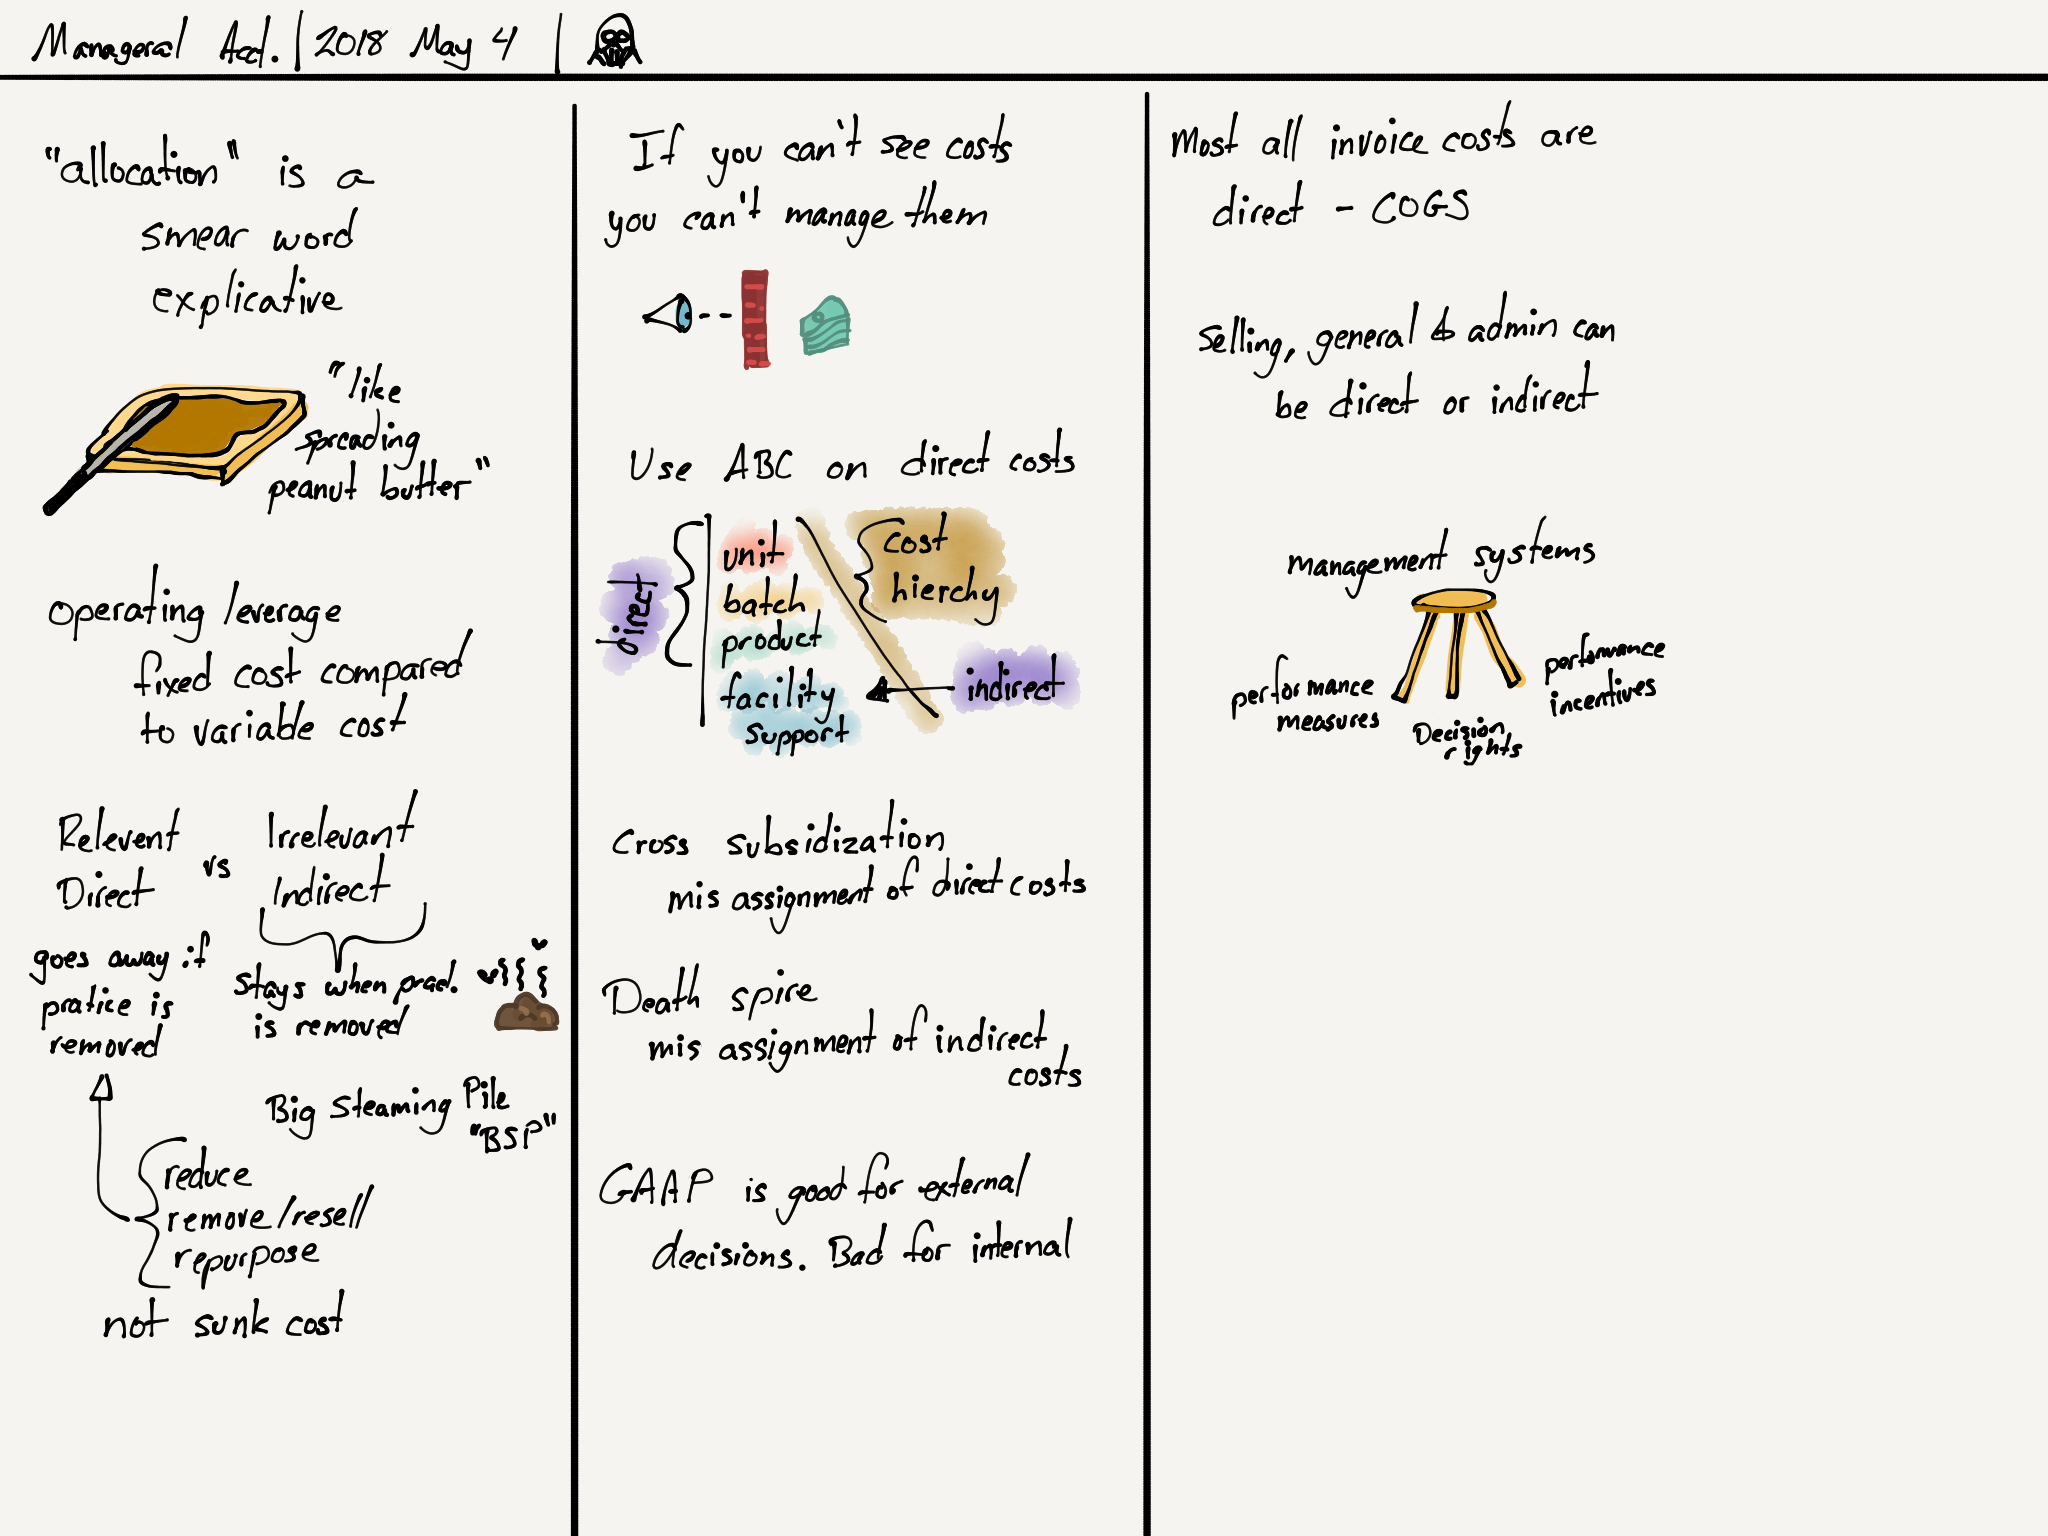 Manageral Acct. | 2018 May 4 |
"allocation" is a
smear word
explicative
"like
spreading
peanut butter"
Operating leverage
fixed cost compared
to variable cost
Relevent vs Irrelevant
Direct Indirect
goes away if
pratice is
removed
stays when prac.
is removed
Big Steaming Pile
"BSP"
reduce
remove/resell
repurpose
not sunk cost
If you can't see costs
you can't manage them
Use ABC on direct costs
direct
unit
batch
product
facility
support
cost
hierchy
indirect
Cross subsidization
mis assignment of direct costs
Death spire
mis assignment of indirect
costs
GAAP is good for external
decisions. Bad for internal
Most all invoice costs are
direct - COGS
Selling, general & admin can
be direct or indirect
management systems
performance
measures
Decision
rights
performance
incentives